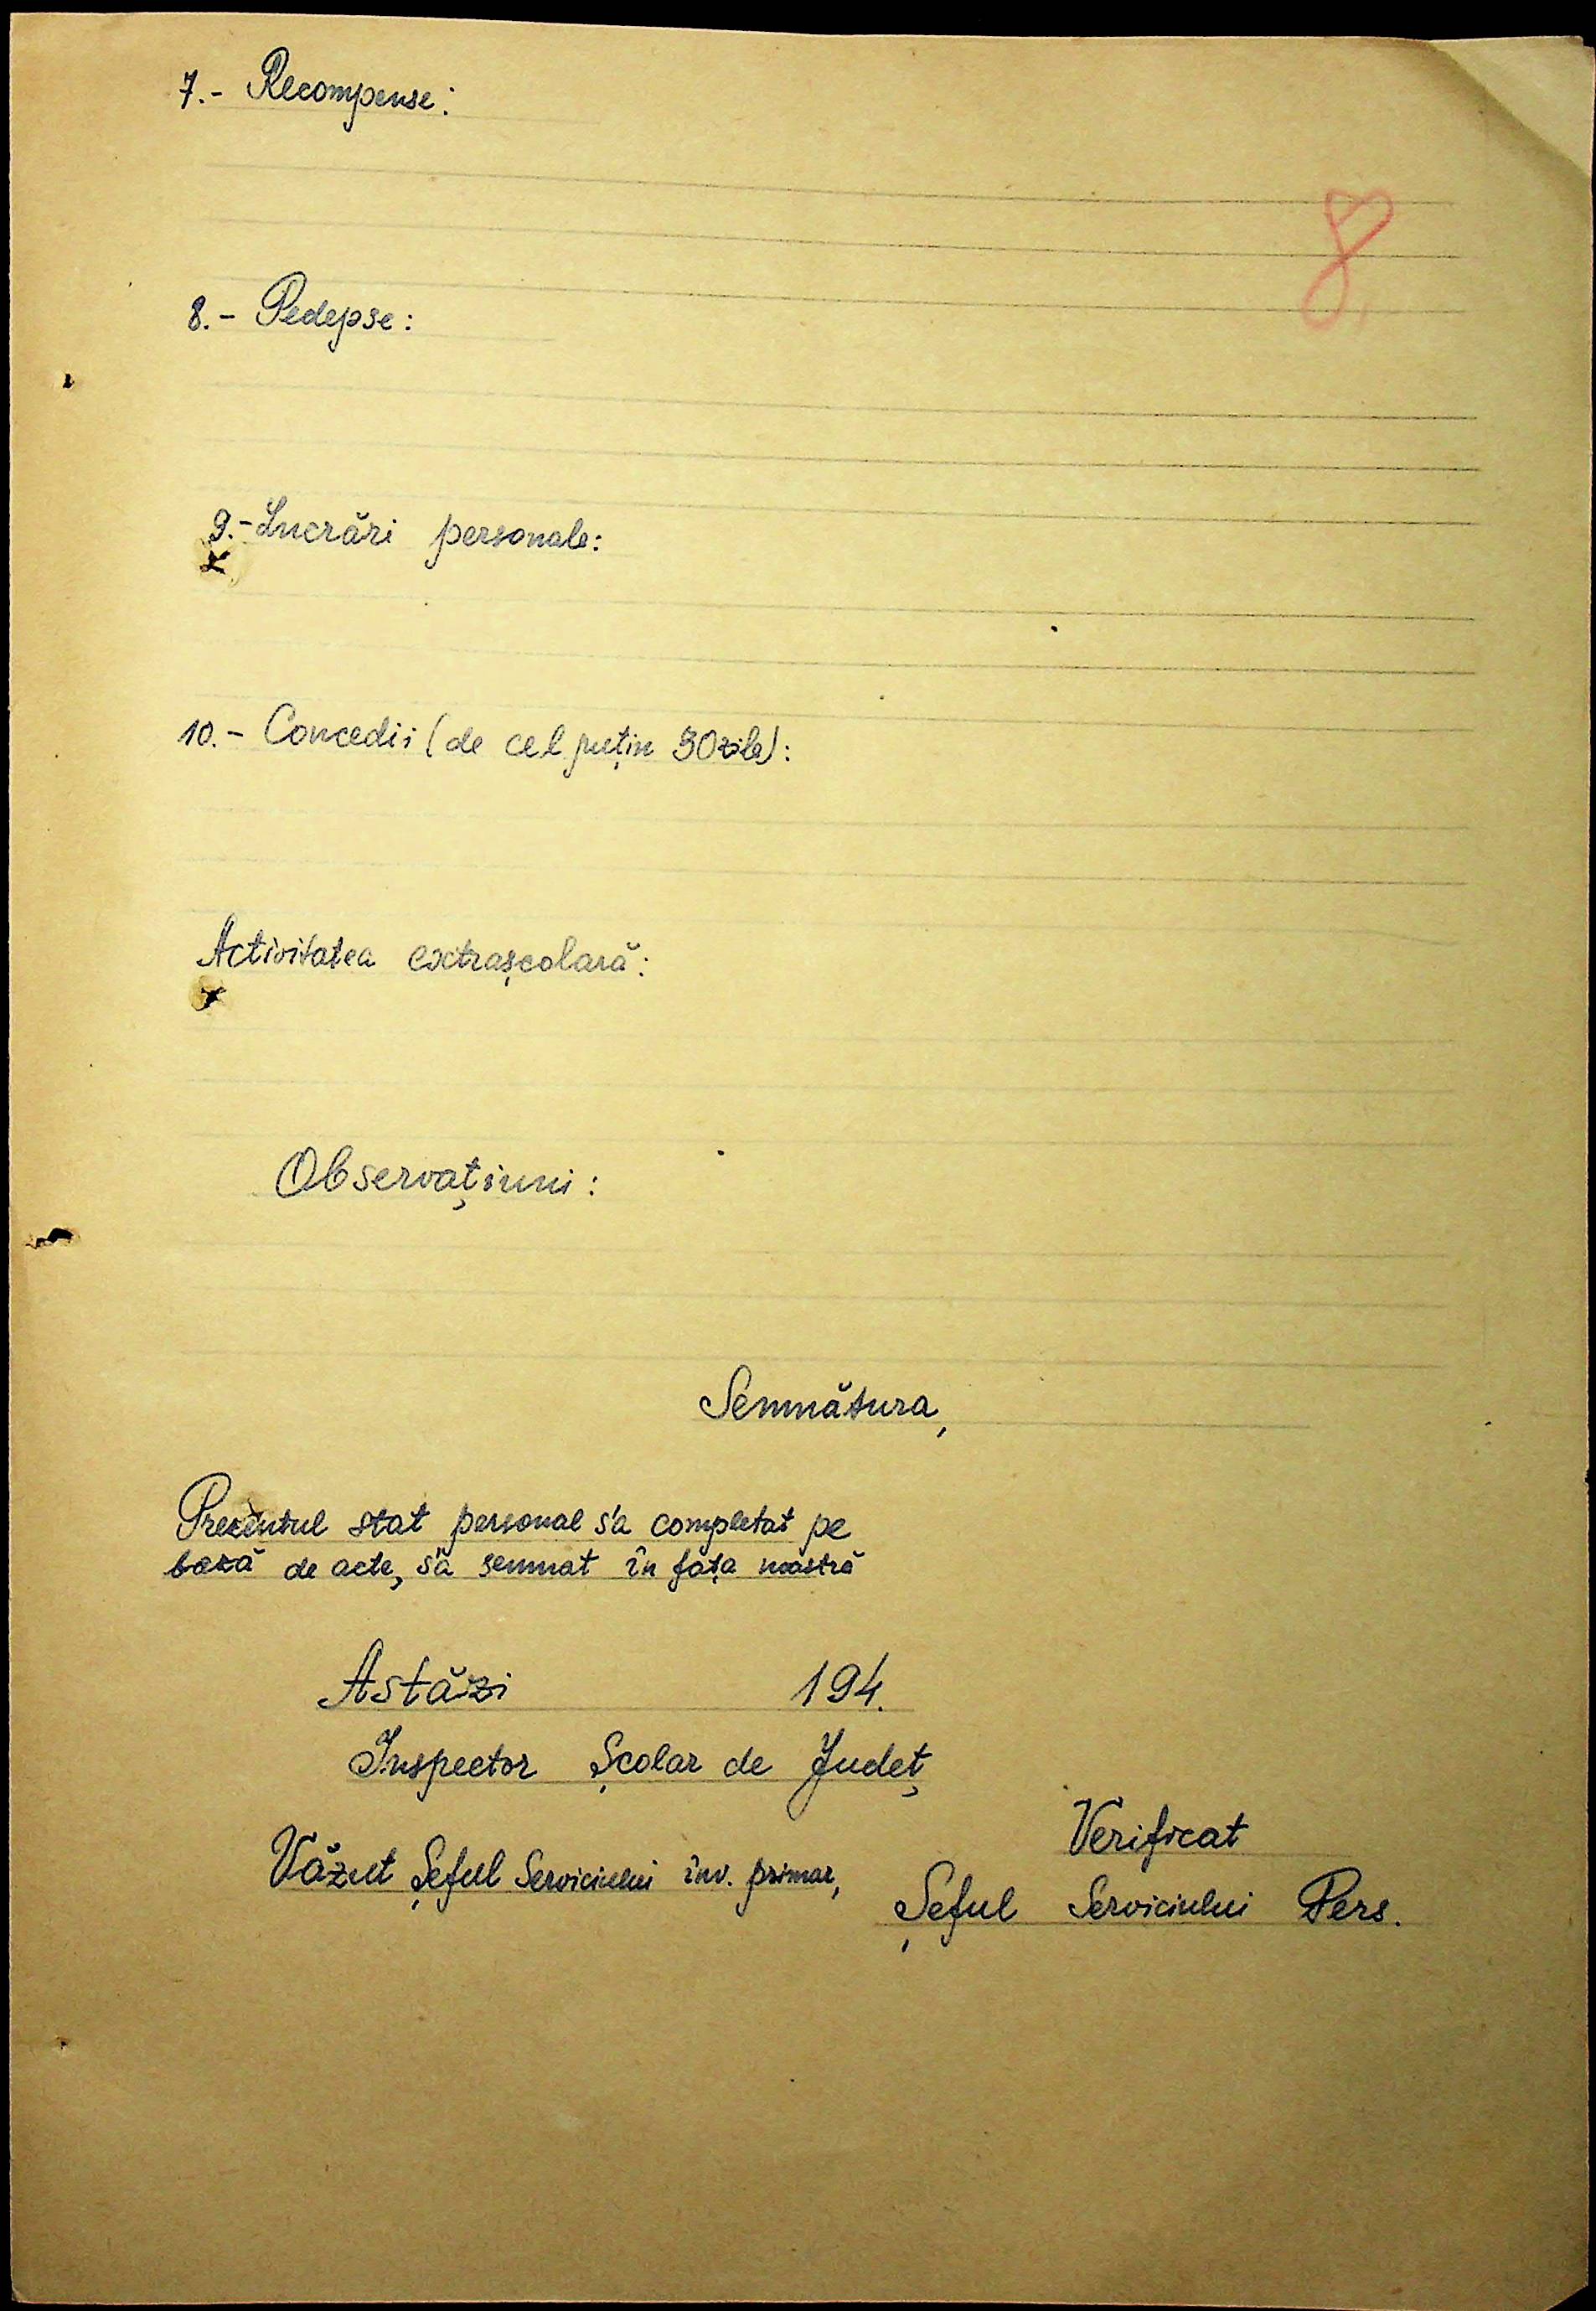 7.- Recompense:
8
8.- Pedepse:
9.- Lucrări personale:
10.- Concedii (de cel puțin 30 zile):
Activitatea extrașcolară:
Observațiuni:
Semnătura,
Prezentul stat personal s'a completat pe
bază de acte, s'a semnat în fața noastră
Astăzi 194.
Inspector Școlar de Județ
Verificat
Văzut Șeful Serviciului înv. primar,
Șeful Serviciului Pers.